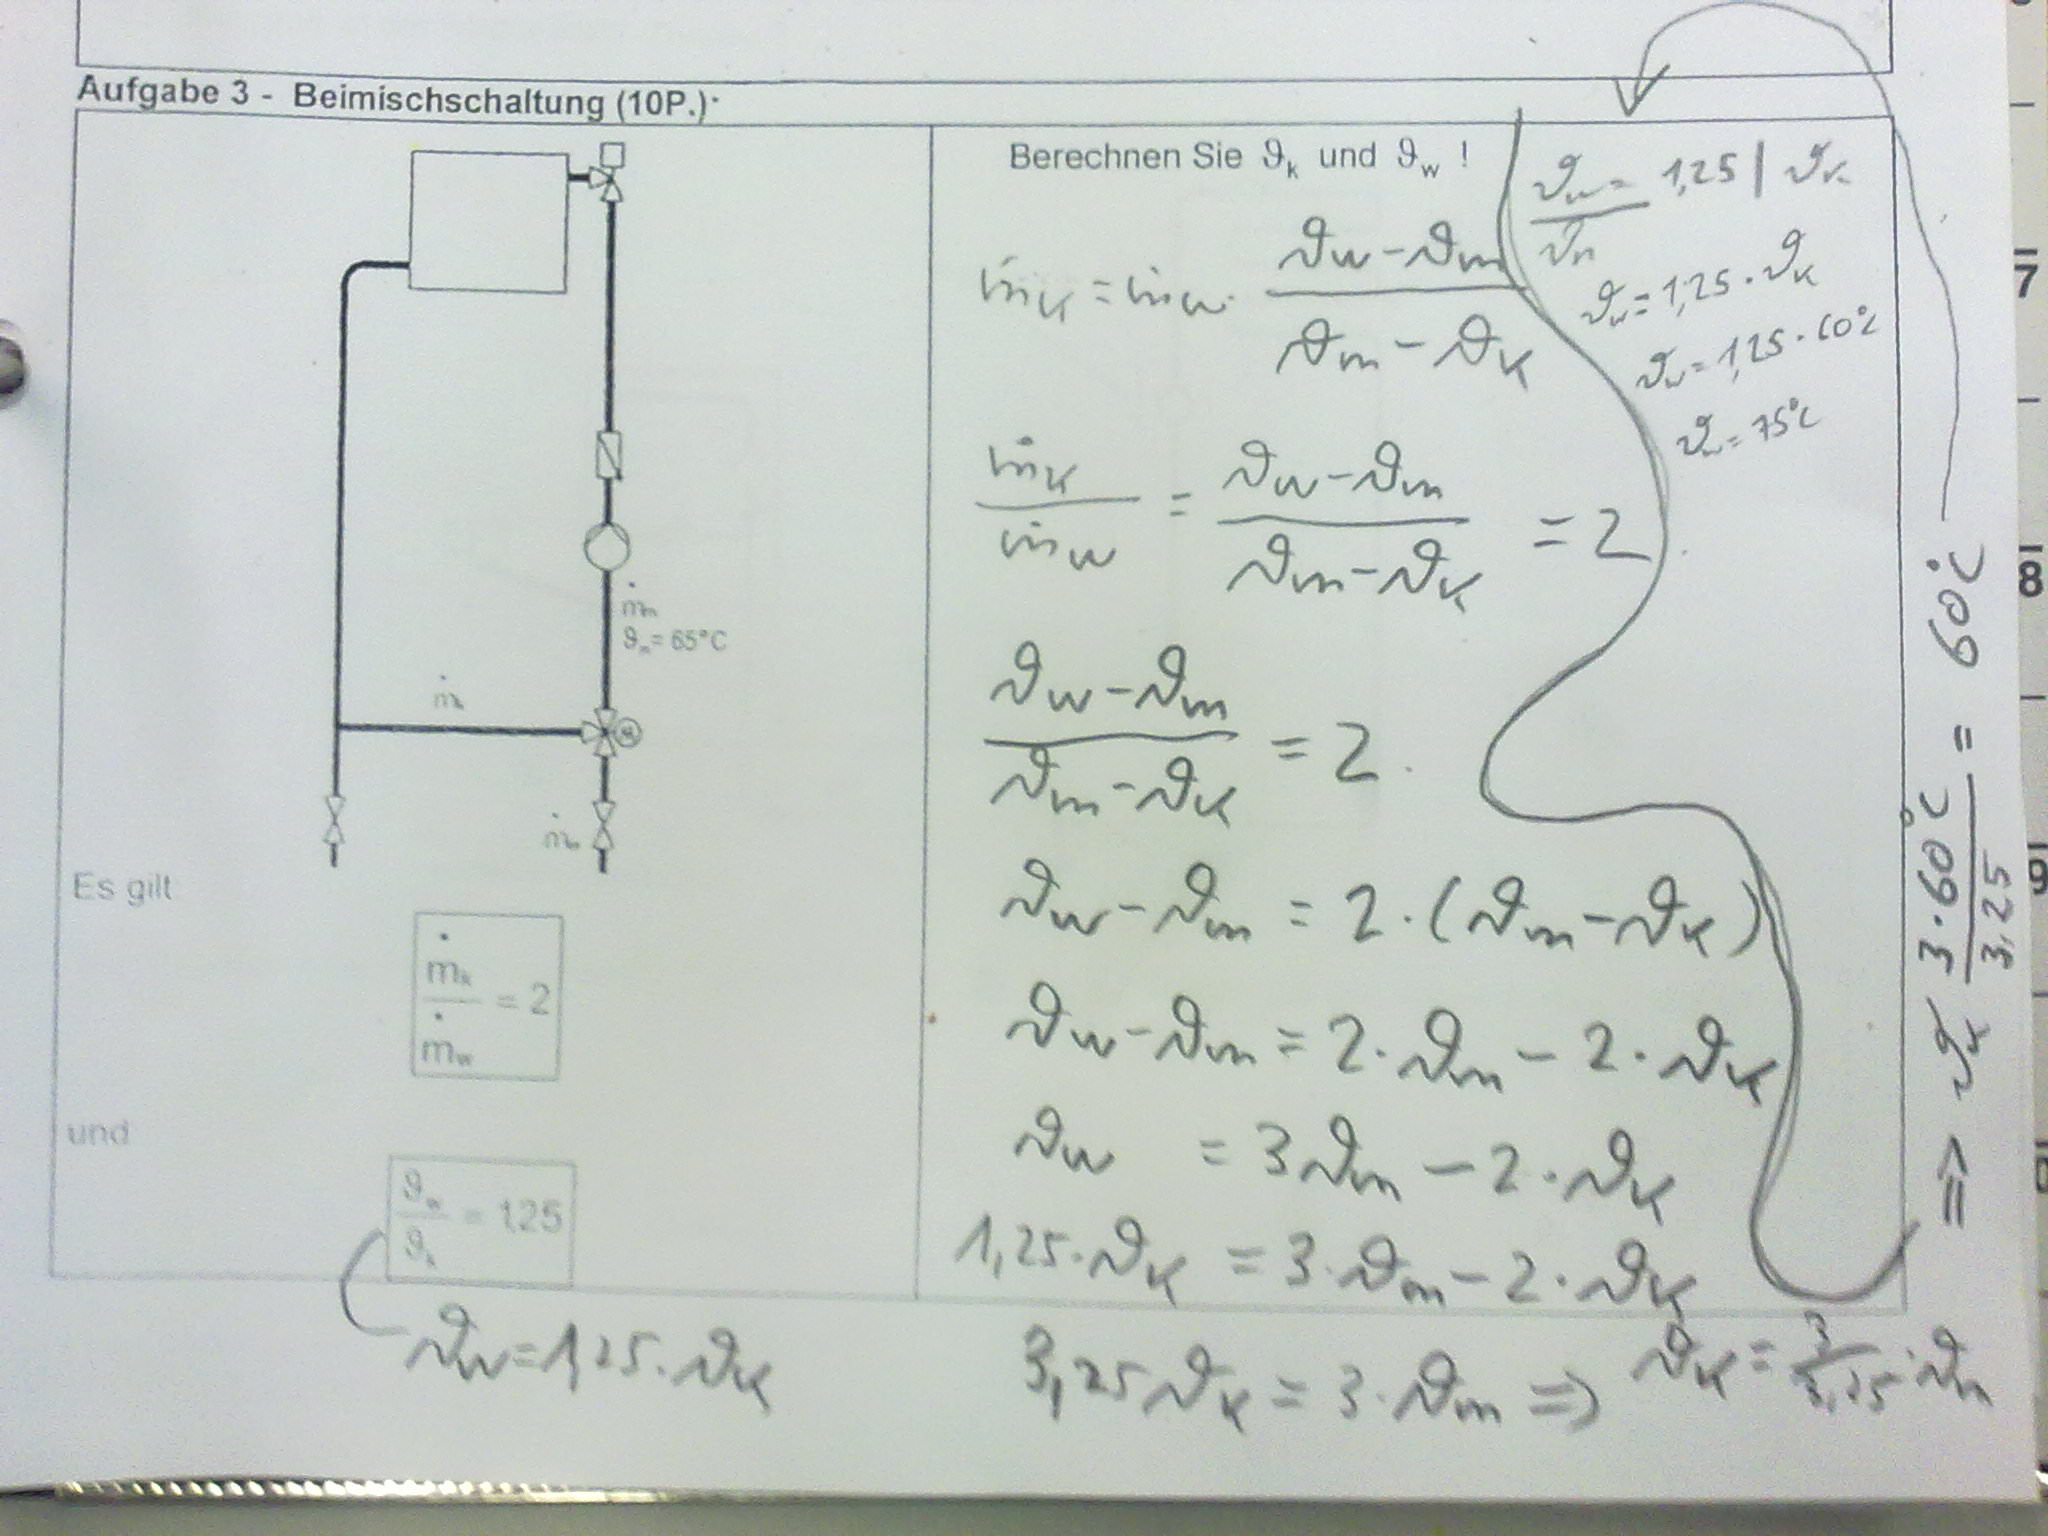 Aufgabe 3 - Beimischschaltung (10P.)
ṁₘ
ϑₘ= 65°C
ṁₖ
ṁw
Es gilt
ṁₖ/ṁw = 2
und
ϑw/ϑₖ = 1,25
ϑw = 1,25 · ϑK
Berechnen Sie ϑₖ und ϑw !
ṁK = ṁw · (ϑw - ϑm)/(ϑm - ϑK)
ṁK/ṁw = (ϑw - ϑm)/(ϑm - ϑK) = 2
(ϑw - ϑm)/(ϑm - ϑK) = 2
ϑw - ϑm = 2 · (ϑm - ϑK)
ϑw - ϑm = 2 · ϑm - 2 · ϑK
ϑw = 3ϑm - 2 · ϑK
1,25 · ϑK = 3 · ϑm - 2 · ϑK
3,25 ϑK = 3 · ϑm => ϑK = 3/3,25 · ϑm
=> ϑK 3·60°C/3,25 = 60°C
ϑw/ϑK = 1,25 | ϑK
ϑw = 1,25 · ϑK
ϑw = 1,25 · 60°C
ϑw = 75°C
7
8
9